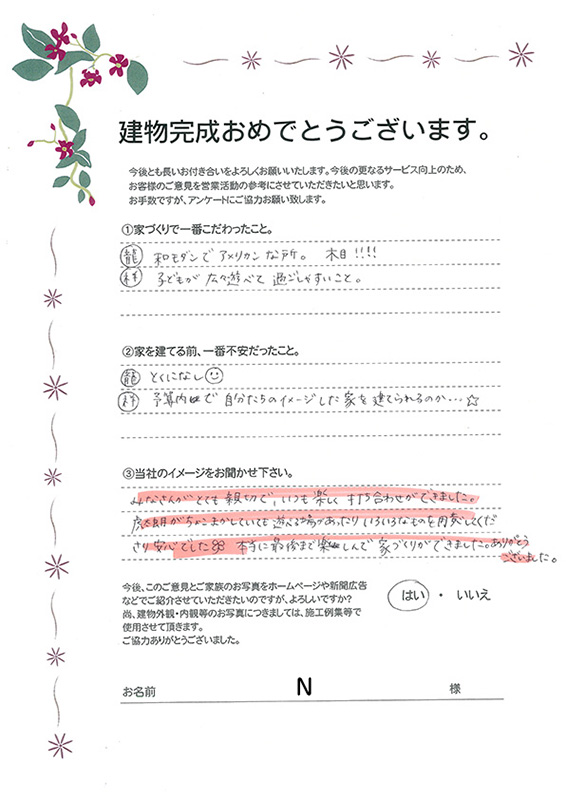 建物完成おめでとうございます。
今後とも長いお付き合いをよろしくお願いいたします。今後の更なるサービス向上のため、
お客様のご意見を営業活動の参考にさせていただきたいと思います。
お手数ですが、アンケートにご協力お願い致します。
①家づくりで一番こだわったこと。
龍 和モダンでアメリカンな所。 木目!!!!
子どもが広々遊べて過ごしやすいこと。
②家を建てる前、一番不安だったこと。
龍 とくになし
予算内で自分たちのイメージした家を建てられるのか…☆
③当社のイメージをお聞かせ下さい。
みなさんがとても親切で、いつも楽しく打ち合わせができました。
虎太朗がちょこまかしていても遊べる場があったりいろいろなものを用意してくだ
さり安心でした 本当に最後まで楽しんで家づくりができました。ありがとう
ございました。
今後、このご意見とご家族のお写真をホームページや新聞広告
などでご紹介させていただきたいのですが、よろしいですか?
はい ・ いいえ
尚、建物外観・内観等のお写真につきましては、施工例集等で
使用させて頂きます。
ご協力ありがとうございました。
お名前 N 様